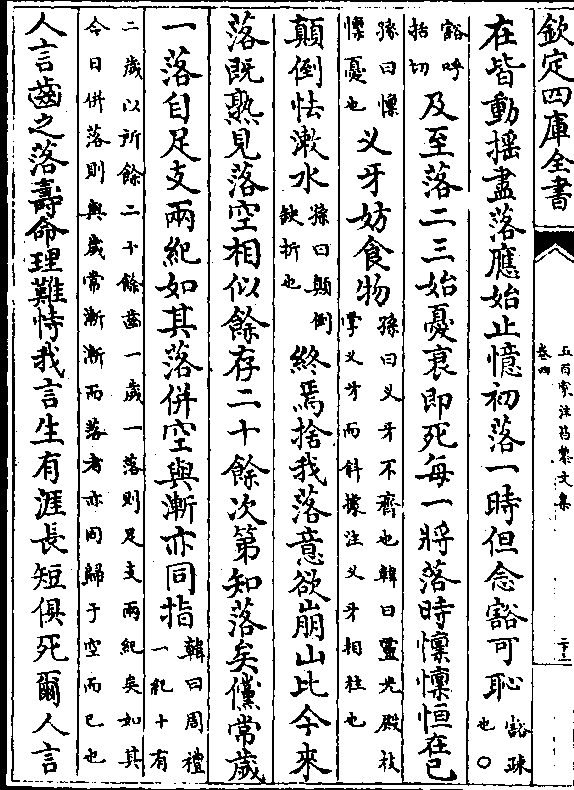 欽定四庫全書
五百家注昌黎文集
卷四
在皆動搖盡落應始止憶初落一時但念豁可恥豁疎也○
豁呼括切及至落二三始憂衰即死每一將落時懍懍恒在己
孫曰懍懍憂也叉牙妨食物孫曰叉牙不齊也韓曰靈光殿枝掌叉牙而斜據注叉牙相柱也
顛倒怯漱水孫曰顛倒缺折也終焉捨我落意欲崩山比今來
落既熟見落空相似餘存二十餘次第知落矣儻常歲
一落自足支兩紀如其落併空與漸亦同指韓曰周禮一紀十有
二歲以所餘二十餘齒一歲一落則足支兩紀矣如其
今日併落則與歲常漸漸而落者亦同歸于空而已也
人言齒之落壽命理難恃我言生有涯長短俱死爾人言